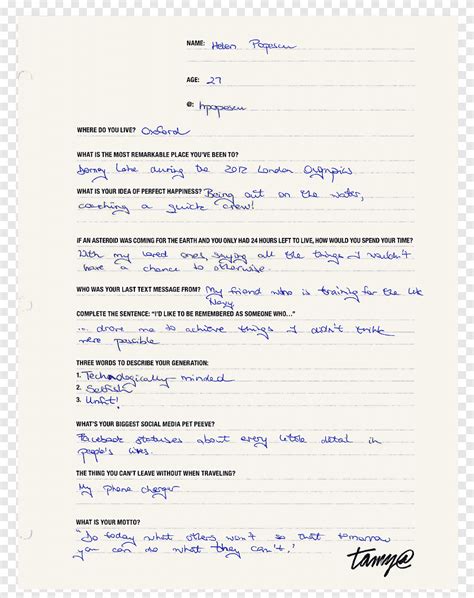 NAME: Helen Popescu
AGE: 27
@: hpopescu
WHERE DO YOU LIVE? Oxford
WHAT IS THE MOST REMARKABLE PLACE YOU'VE BEEN TO?
Dorney Lake during the 2012 London Olympics
WHAT IS YOUR IDEA OF PERFECT HAPPINESS? Being out on the water,
coaching a quick crew!
IF AN ASTEROID WAS COMING FOR THE EARTH AND YOU ONLY HAD 24 HOURS LEFT TO LIVE, HOW WOULD YOU SPEND YOUR TIME?
With my loved ones, saying all the things I wouldn't
have a chance to otherwise.
WHO WAS YOUR LAST TEXT MESSAGE FROM? My friend who is training for the UK
Navy
COMPLETE THE SENTENCE: "I'D LIKE TO BE REMEMBERED AS SOMEONE WHO..."
... drove me to achieve things I didn't think
were possible
THREE WORDS TO DESCRIBE YOUR GENERATION:
1. Technologically minded
2. Selfish
3. Unfit!
WHAT'S YOUR BIGGEST SOCIAL MEDIA PET PEEVE?
Facebook statuses about every little detail in
people's lives.
THE THING YOU CAN'T LEAVE WITHOUT WHEN TRAVELING?
My phone charger
WHAT IS YOUR MOTTO?
"Do today what others won't so that tomorrow
you can do what they can't."